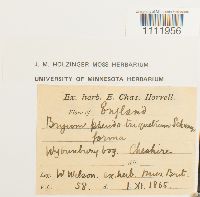 1111956
J. M. HOLZINGER MOSS HERBARIUM
UNIVERSITY OF MINNESOTA HERBARIUM
Ex. herb. E. Chas. Horrell.
Flora of England
Bryum pseudo-triquetrum Schwaeg.
forma
Wybunbury bog. Cheshire
Ex. W Wilson. ex herb. Mus. Brit.
58. d. 1. XI. 1865.